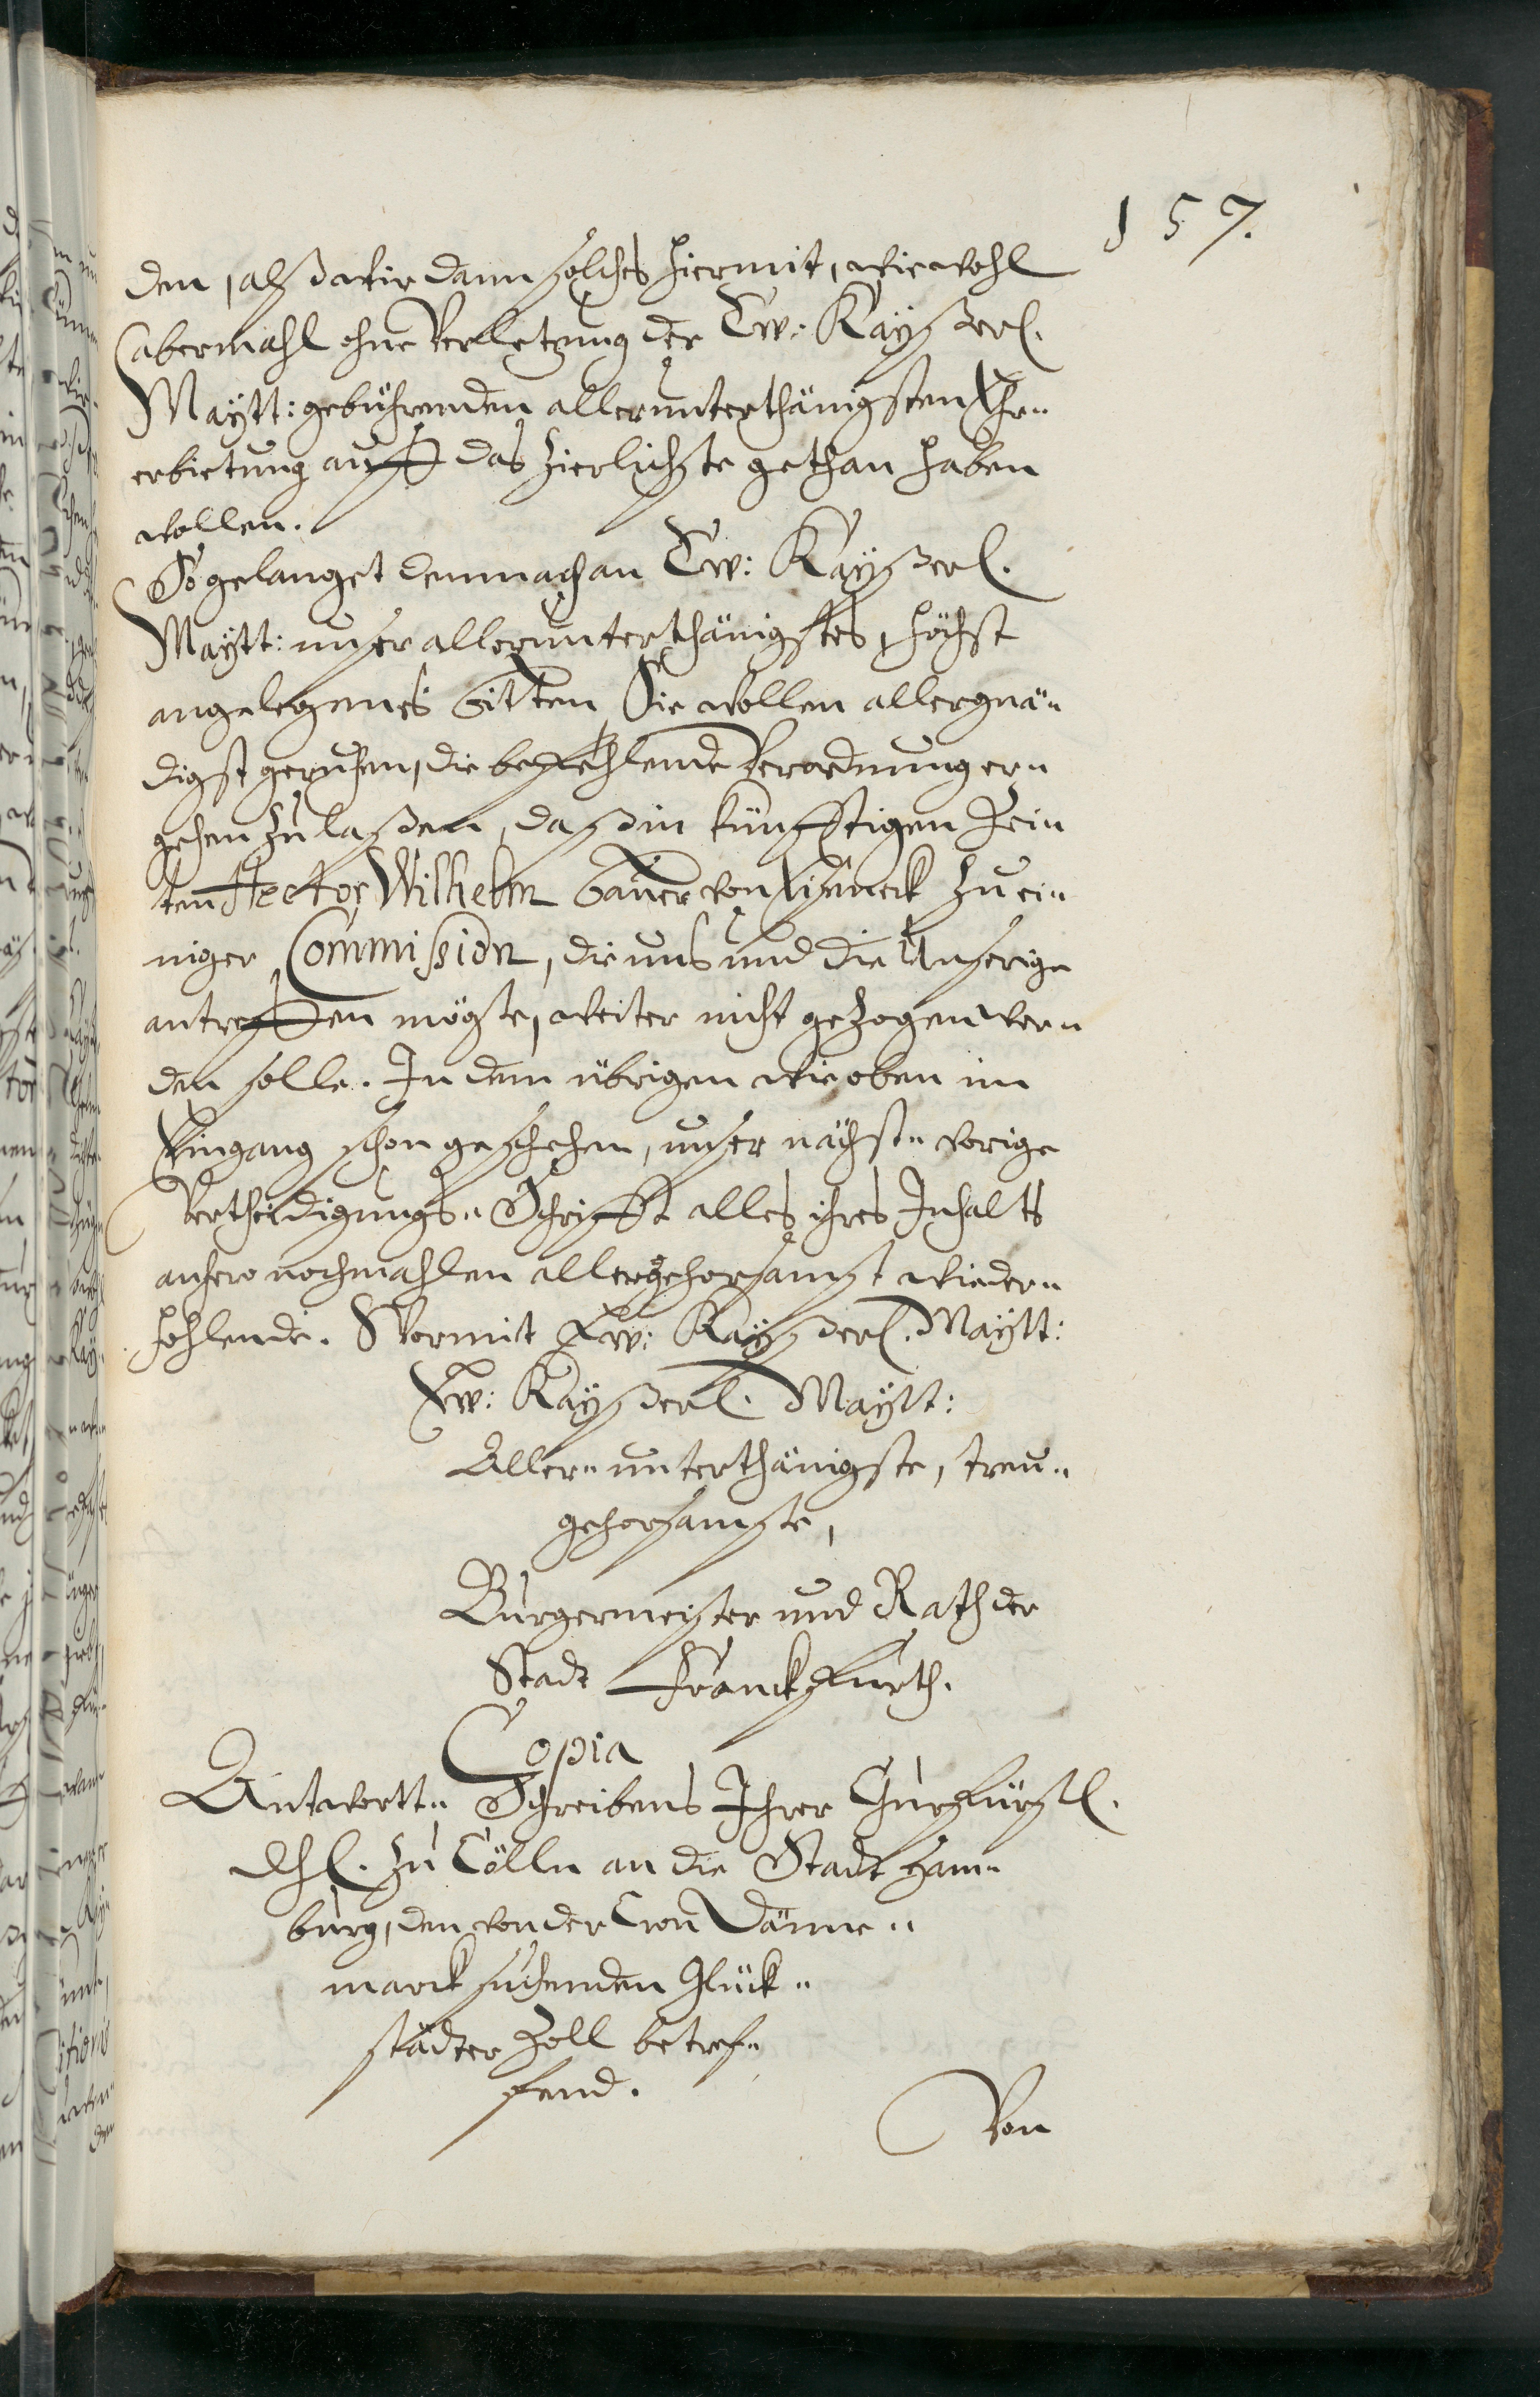 157.
den, alß wir dann solches hiermit, wiewohl
abermahl ohne Verletzung der Ew: Kayßerl.
Maytt: gebührenden allerunterthänigsten Ehr„
erbietung auff das zierlichste gethan haben
wollen.
So gelanget demnach an Ew: Kayßerl.
Maytt: unser allerunterthänigstes, höchst
angelegenes bitten, Sie wollen allergnä„
digst geruhen, die befehlende Verordnung er„
gehen zu laßen, daß in künfftigen Zei„
ten Hector Wilhelm bauer von Eyseneck zu ei„
niger Commission, die uns und die Unserige
antreffen mögte, weiter nicht gezogen wer„
den solle. In dem übrigen wie oben im
Eingang schon geschehen, unser nächst„ vorige
Vertheidigungs„ Schrifft alles ihres Inhalts
anhero nochmahlen allergehorsamst wieder„
hohlende. Wormit Ew: Kayßerl. Maytt:
Ew: Kayßerl. Maytt:
Aller„ unterthänigste, treu„
gehorsamste,
Burgermeister und Rath der
Stadt Franckfurth.
Copia
Antwortt„ Schreibens Ihrer Churfürstl.
Dhl. zu Cölln an die Stadt Ham„
burg, den von der Cron Dänne„
marck suchenden Glück„
städter Zoll betref„
fend.
Von